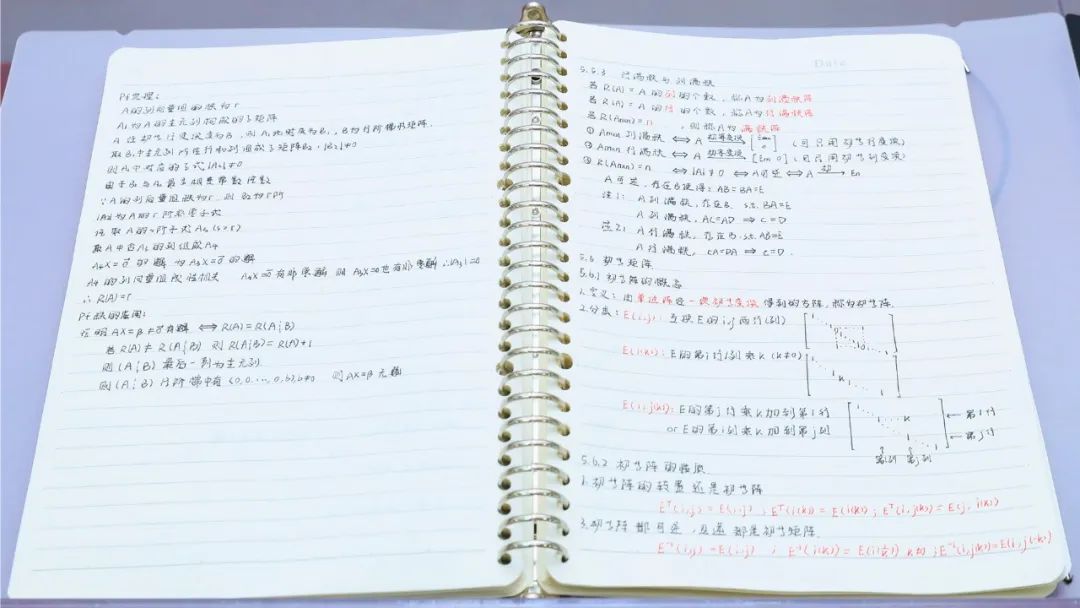 Pf定理:
A的列向量组的秩为r
A₁为A的主元列构成的子矩阵
A 经初等行变换变为B,则A₁也变为B₁,B为行阶梯形矩阵.
取B₁中主元列所在行和列组成子矩阵B₂,|B₂|≠0
则A₁中对应的子式|A₂|≠0
由于B₂与A₂最多相差常数倍数
∵A的列向量组秩为r 则B₂为r阶
|A₂|为A的r阶非零子式
任取A的s阶子式A₃(s>r)
取A中含A₃的列组成A₄
A₄X=0⃗有解 为A₃X=0⃗的解
A₄的列向量组线性相关 A₄X=0⃗有非零解 则A₃X=0也有非零解 ∴|A₃|=0
∴ R(A)=r
Pf 秩的应用:
证明AX=β≠0⃗有解 ⟺ R(A)=R(A¦B)
若R(A)≠R(A¦B) 则R(A¦B)=R(A)+1
则(A¦B)最后一列为主元列
则(A¦B)行阶梯中有(0,0,…,0,b),b≠0 则AX=β无解
Date
5.5.3 行满秩与列满秩
若R(A)=A的列的个数,称A为列满秩阵
若R(A)=A的行的个数,称A为行满秩阵
若R(Aₙₓₙ)=n ,则称A为满秩阵
① Aₘₓₙ列满秩 ⟺ A 初等变换 [Eₙ 0] (可只用初等行变换)
② Aₘₓₙ行满秩 ⟺ A 初等变换 [Eₘ 0] (可只用初等列变换)
③ R(Aₙₓₙ)=n ⟺ |A|≠0 ⟺ A可逆 ⟺ A 初 → Eₙ
A可逆,存在B使得:AB=BA=E
注1: A列满秩,存在B, s.t. BA=E
A列满秩, AC=AD ⇒ C=D
注2: A行满秩,存在B s.t. AB=E
A行满秩, CA=DA ⇒ C=D.
5.6 初等矩阵
5.6.1 初等阵的概念
1.定义:由单位阵经一次初等变换得到的方阵,称为初等阵.
2.分类:E(i,j):互换E的i,j两行(列)
E(i(k)):E的第i行/列乘k (k≠0)
E(i,j(k)):E的第j行乘k加到第i行
or E的第i列乘k加到第j列
← 第i行
← 第j行
第i列 第j列
5.6.2 初等阵的性质
1.初等阵的转置还是初等阵
Eᵀ(i,j)=E(i,j);Eᵀ(i(k))=E(i(k));Eᵀ(i,j(k))=E(j,i(k))
3.初等阵都可逆,且逆都是初等矩阵.
E⁻¹(i,j)=E(i,j) ; E⁻¹(i(k))=E(i(1/k)) k≠0 ;E⁻¹(i,j(k))=E(i,j(-k))